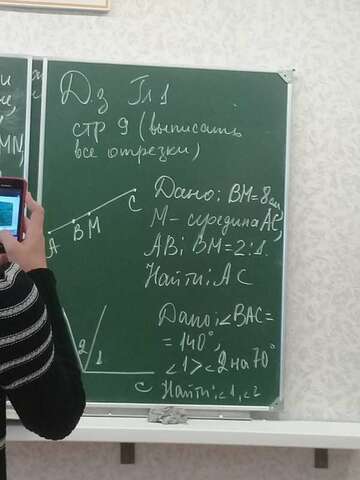 Д.з Гл 1
стр 9 (выписать
все отрезки)
Дано: BM=8см,
M-середина AC,
AB:BM=2:1.
Найти: AC
A B M C
Дано: ∠BAC=
=140°,
∠1>∠2 на 70°
Найти: ∠1, ∠2
2 1
C
MN,